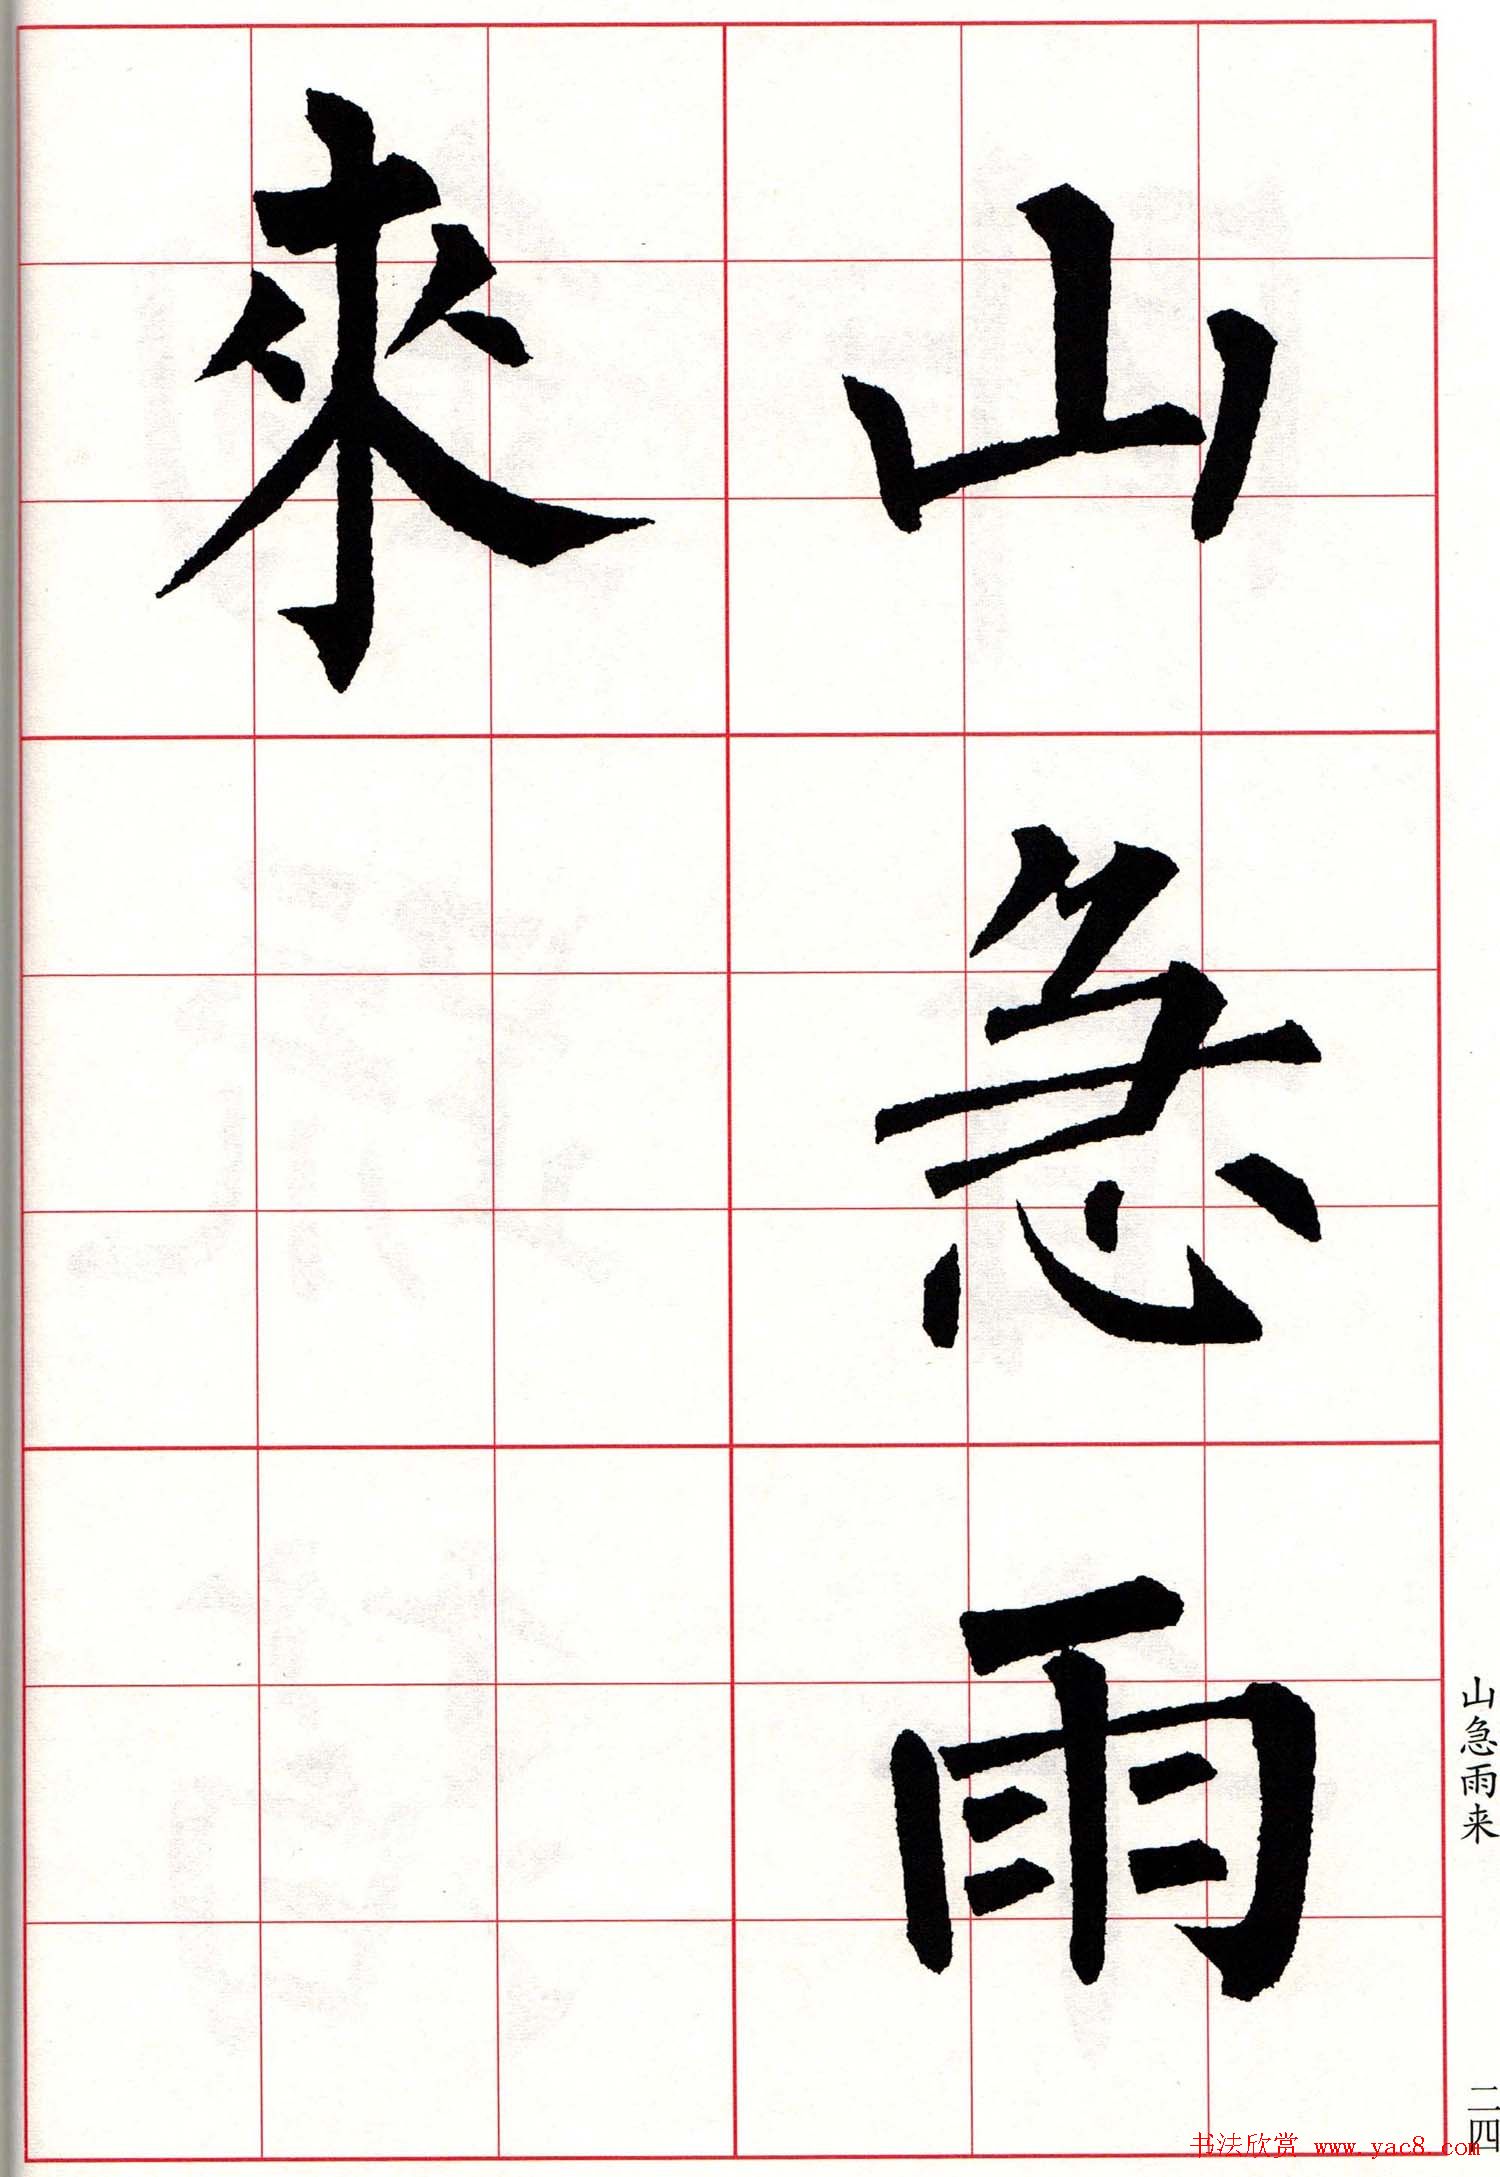 山急雨
來
山急雨来
二四
书法欣赏 www.yac8.com